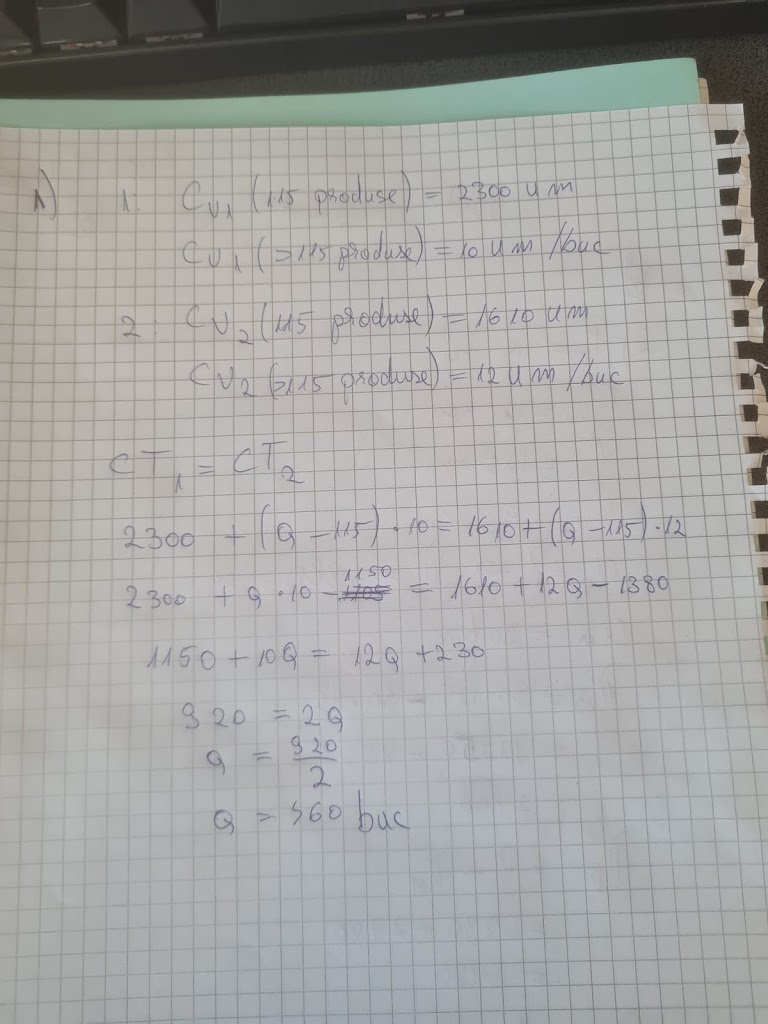 1) 1: CV1 (115 produse) = 2300 um
CV1 (>115 produse) = 10 um /buc
2: CV2 (115 produse) = 1610 um
CV2 (>115 produse) = 12 um /buc
CT1 = CT2
2300 + (Q - 115) · 10 = 1610 + (Q - 115) · 12
2300 + Q · 10 - 1150 = 1610 + 12Q - 1380
1150 + 10Q = 12Q + 230
920 = 2Q
Q = 920/2
Q = 460 buc